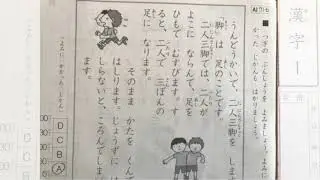 漢字1
つぎの ぶんしょうを よみましょう。よみに
かかった じかんも はかりましょう。
うんどうかいで、二人三脚を しま
脚は 足のことです。
二人三脚では、二人が
よこに ならんで、足を
ひもで むすびます。す
ると、二人で 三ぼんの
足に なります。
そのまま かたを くんで
はしります。じょうずに は
しらないと、ころんでしま
ます。
よみに かかった じかん
D
C
B
A